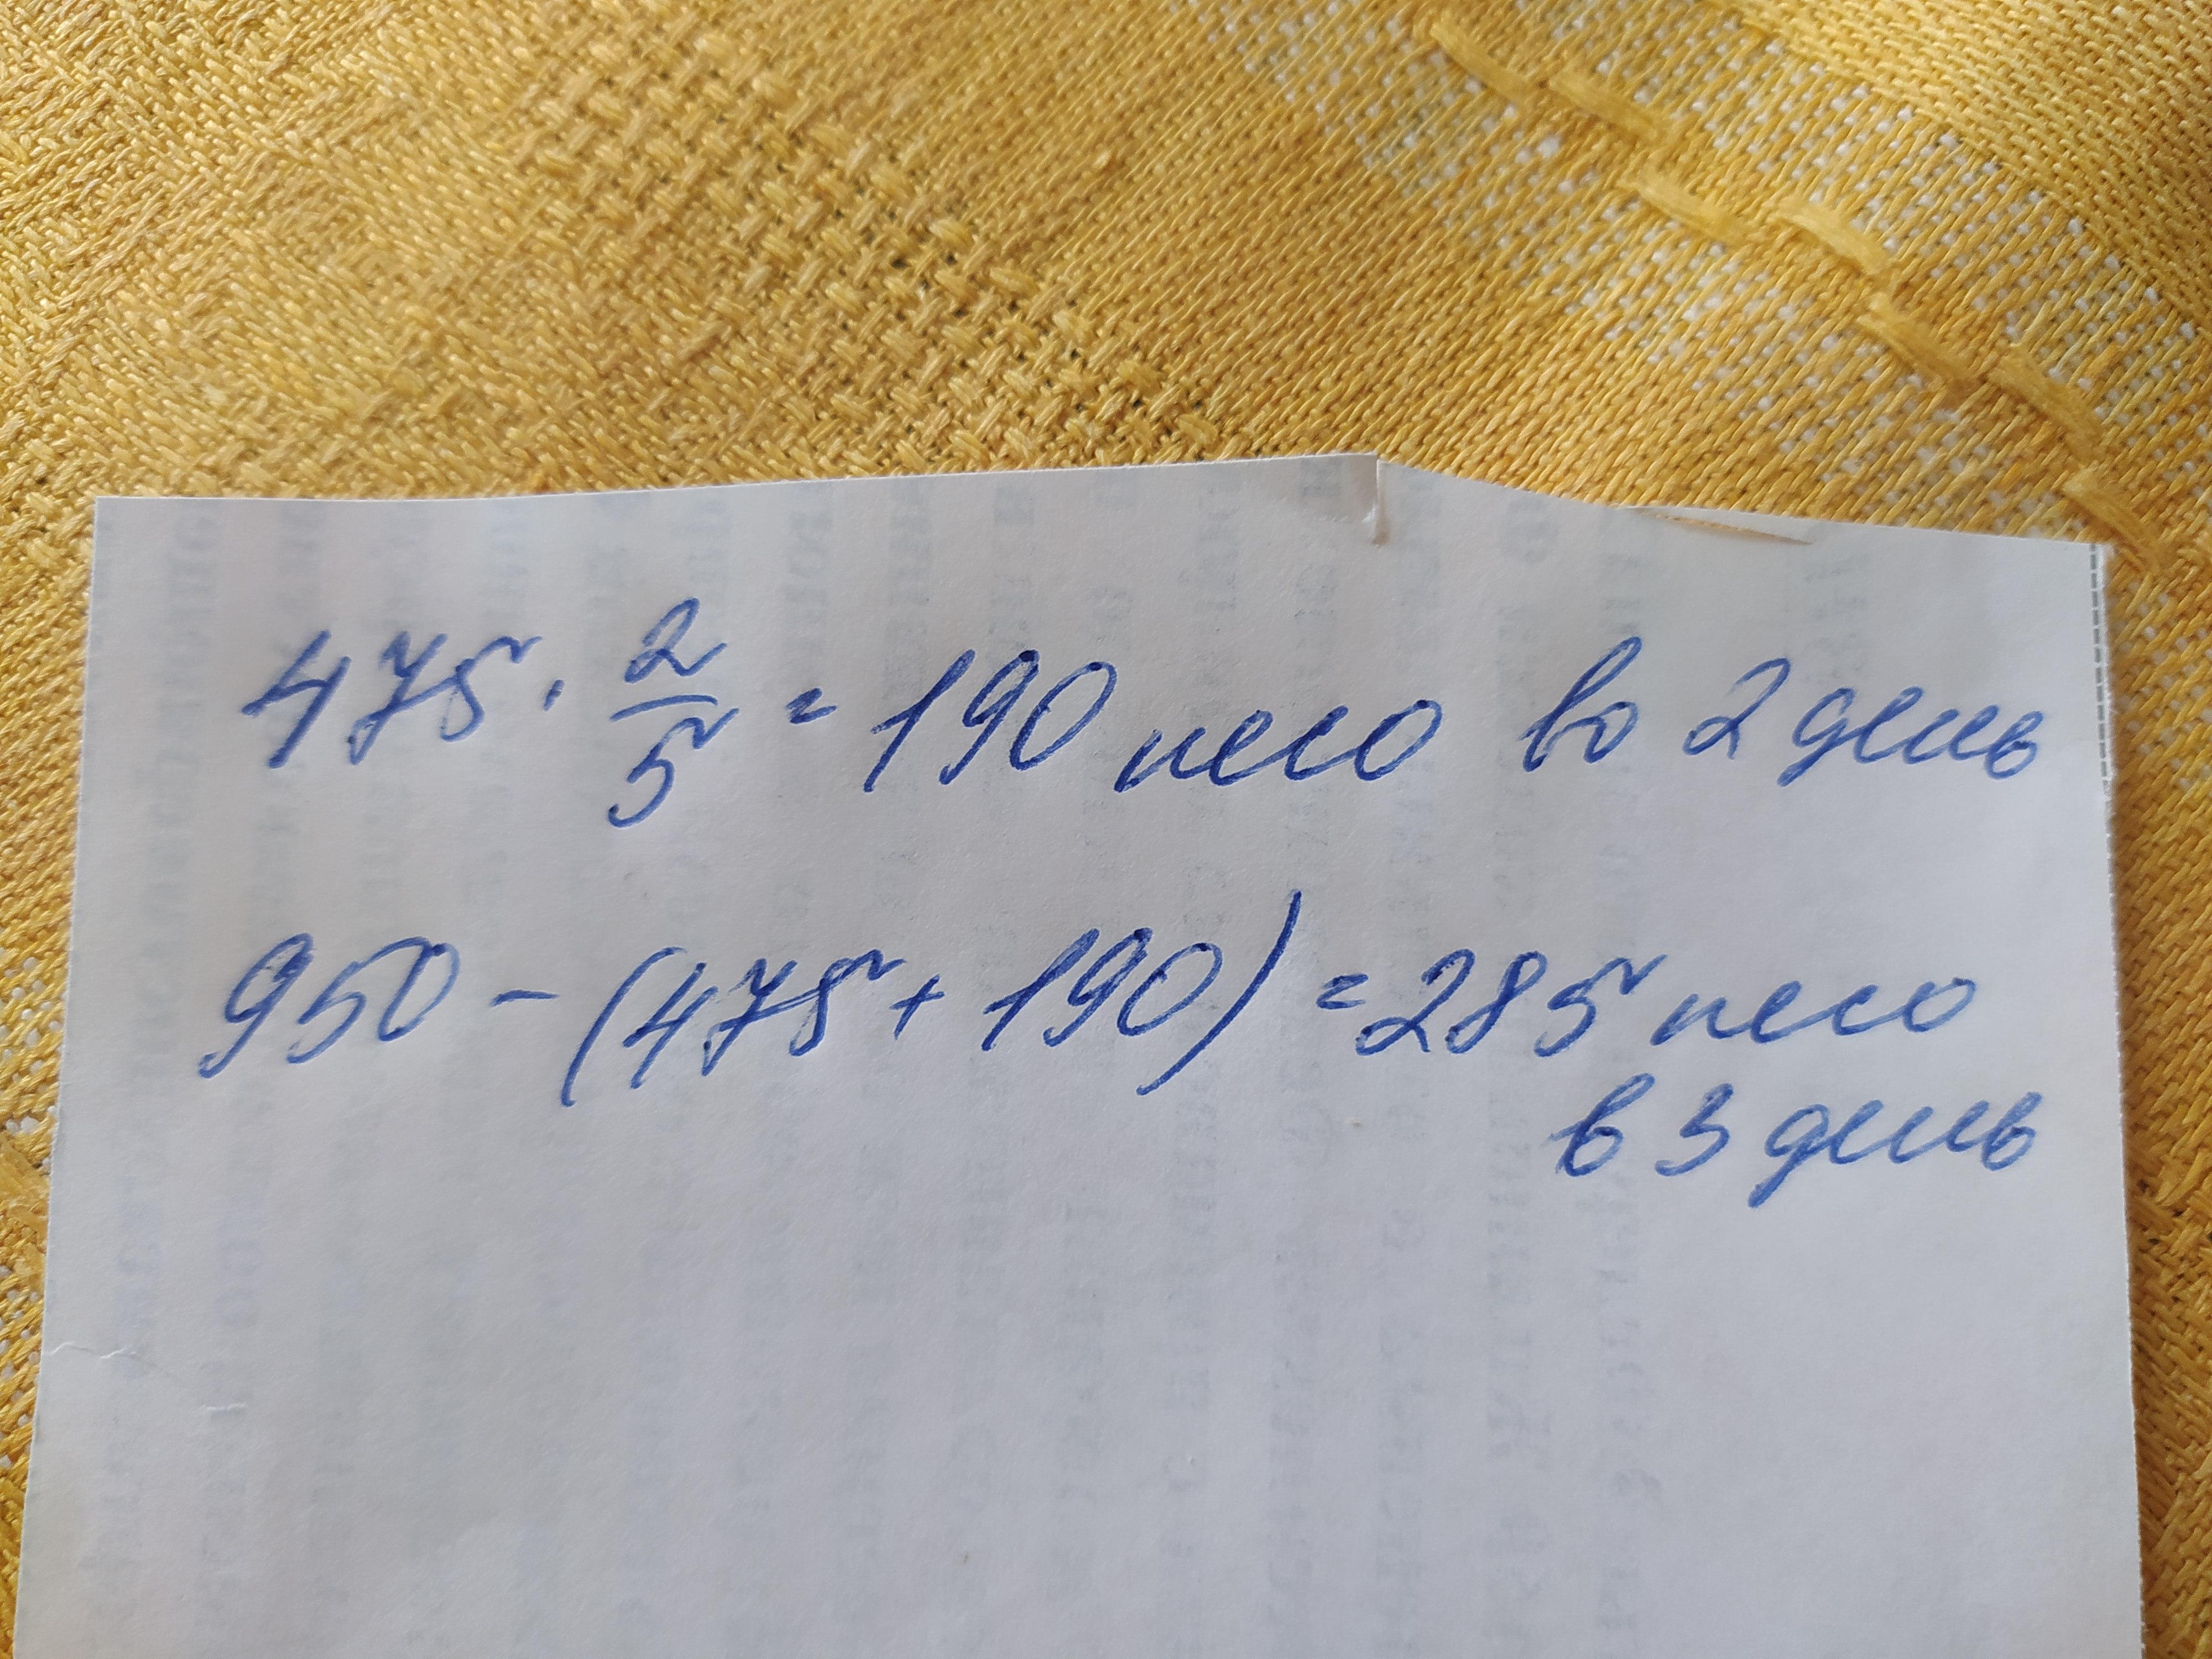 475 · 2/5 = 190 песо во 2 день
950 - (475 + 190) = 285 песо
в 3 день